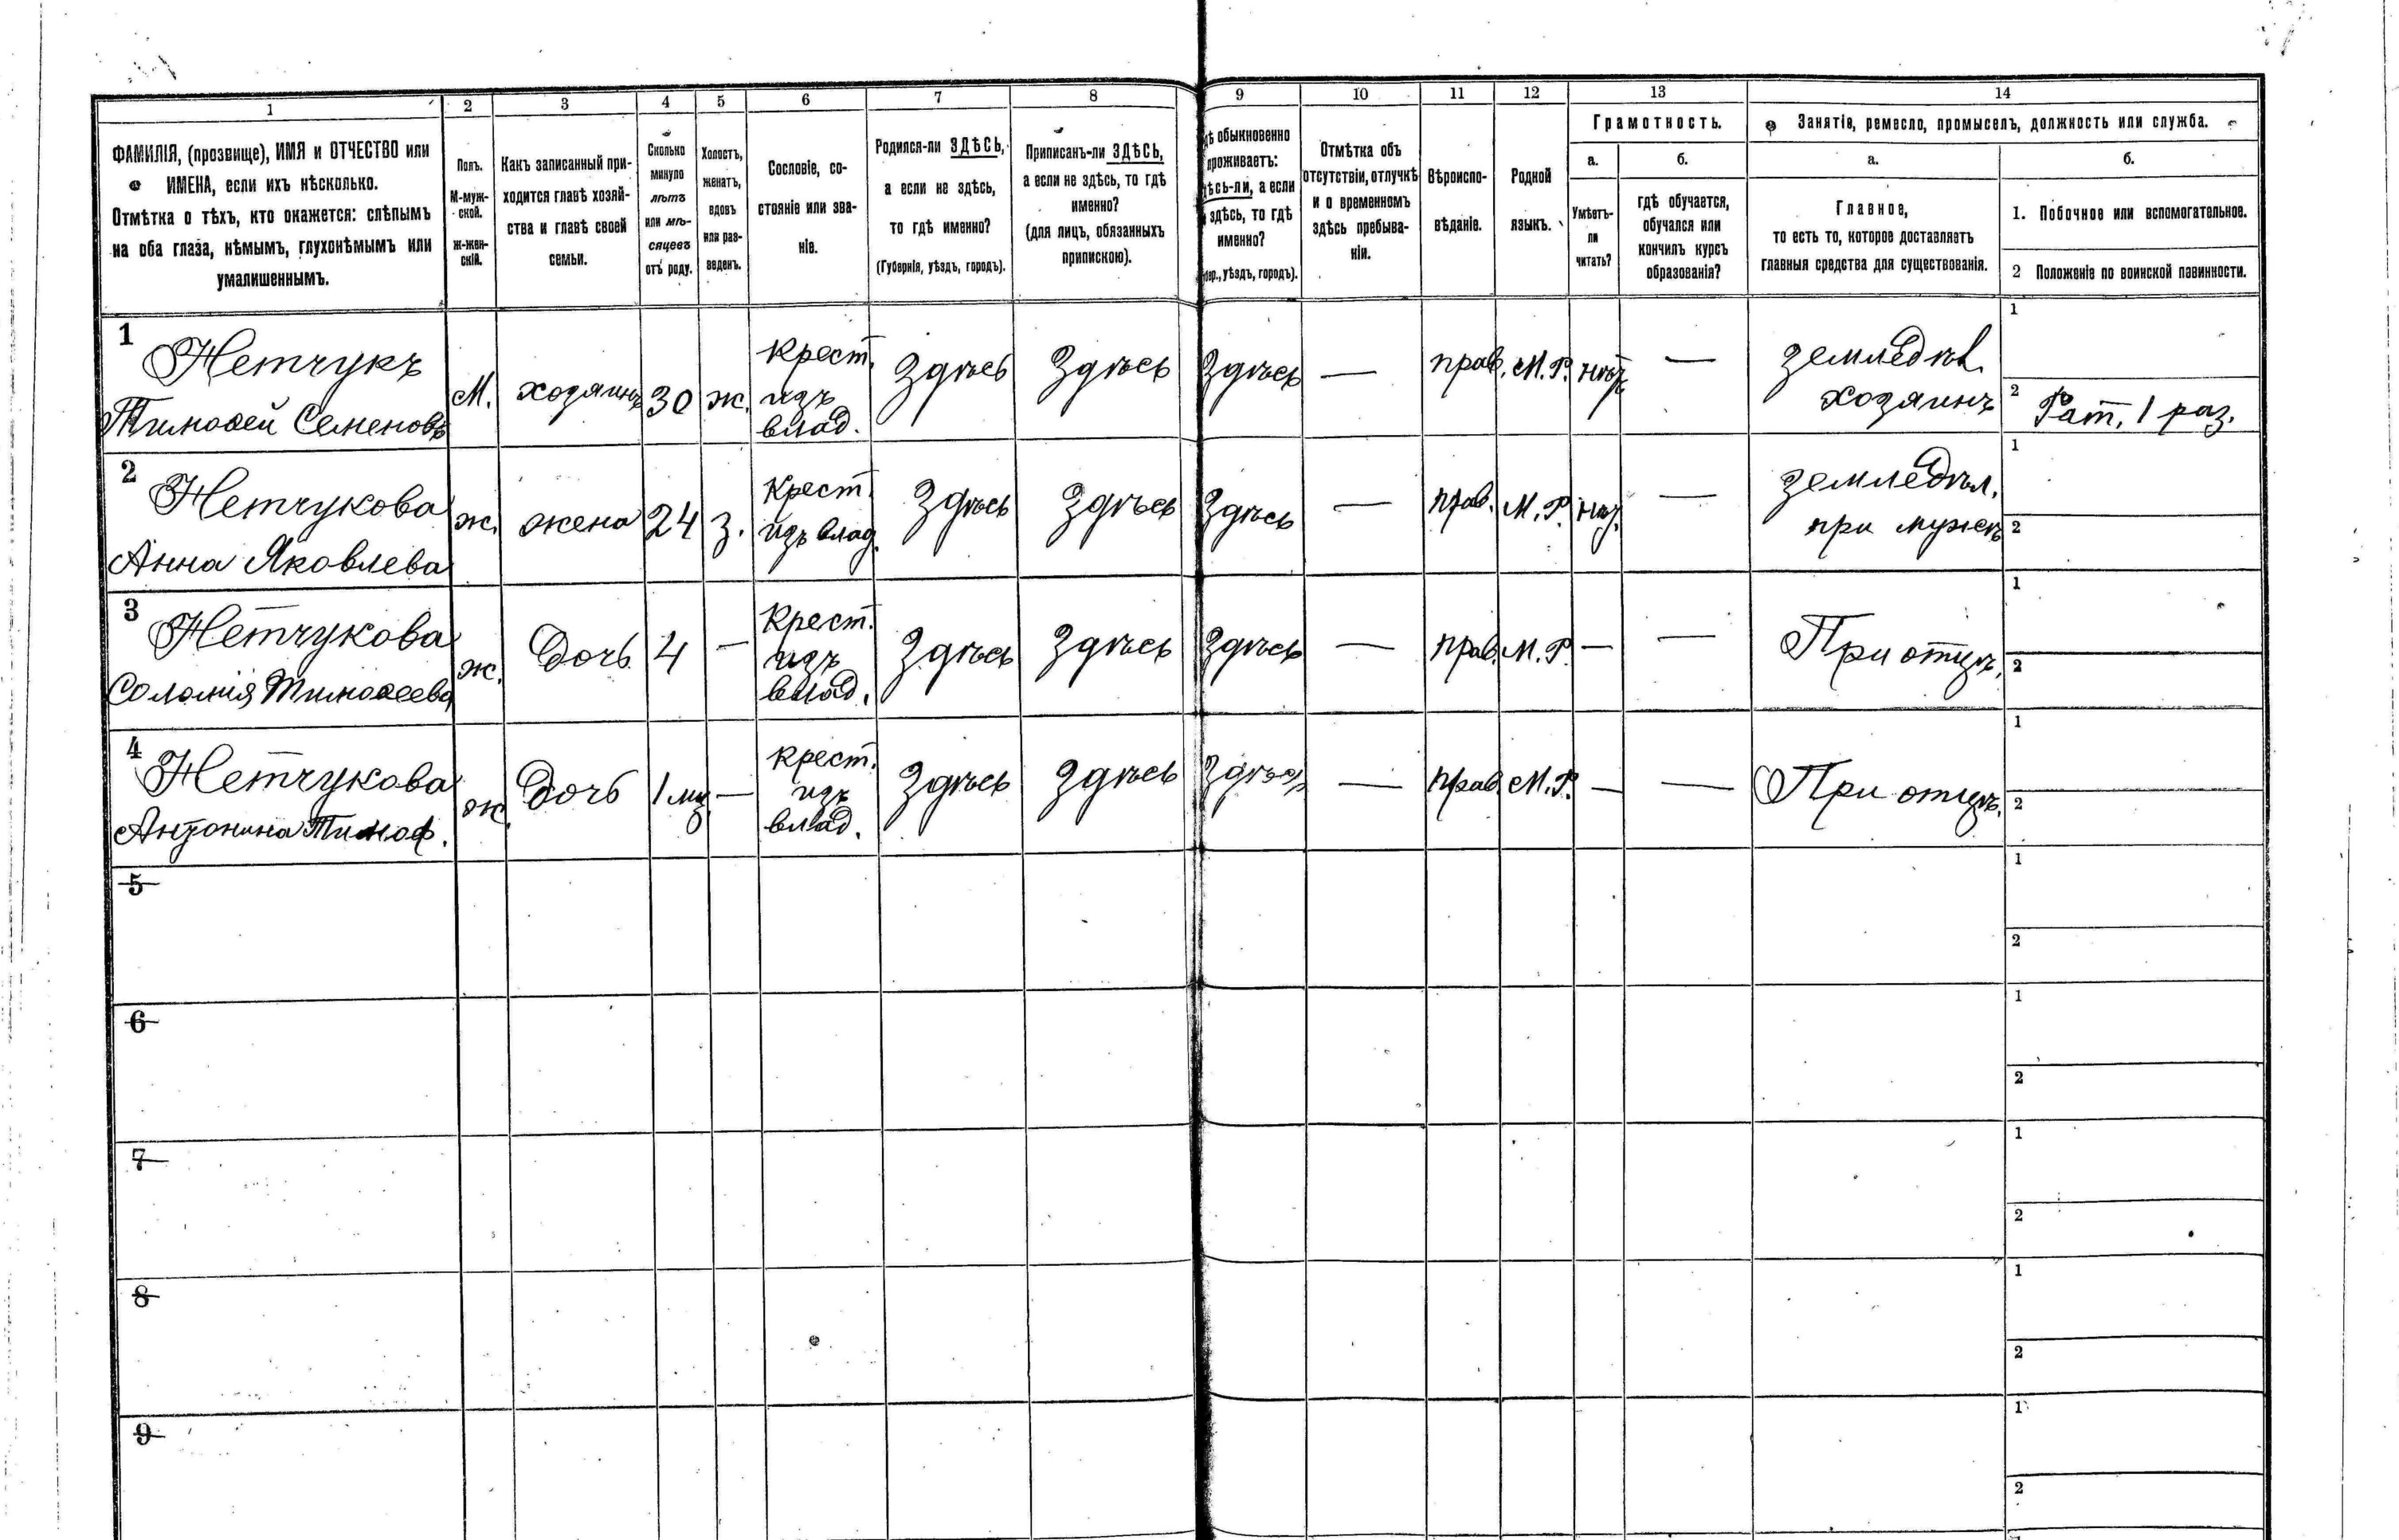 1 2 3 4 5 6 7 8 9 10 11 12 13 14
ФАМИЛІЯ, (прозвище), ИМЯ и ОТЧЕСТВО или
ИМЕНА, если ихъ нѣсколько.
Отмѣтка о тѣхъ, кто окажется: слѣпымъ
на оба глаза, нѣмымъ, глухонѣмымъ или
умалишеннымъ.
Полъ.
М-муж-
ской.
ж-жен-
скій.
Какъ записанный при-
ходится главѣ хозяй-
ства и главѣ своей
семьи.
Сколько
минуло
лѣтъ
или мѣ-
сяцевъ
отъ роду.
Холостъ,
женатъ,
вдовъ
или раз-
веденъ.
Сословіе, со-
стояніе или зва-
ніе.
Родился-ли ЗДѢСЬ,
а если не здѣсь,
то гдѣ именно?
(Губернія, уѣздъ, городъ).
Приписанъ-ли ЗДѢСЬ,
а если не здѣсь, то гдѣ
именно?
(для лицъ, обязанныхъ
припискою).
ѣ обыкновенно
проживаетъ:
ѣсь-ли, а если
здѣсь, то гдѣ
именно?
уѣздъ, городъ).
Отмѣтка объ
отсутствіи, отлучкѣ
и о временномъ
здѣсь пребыва-
ніи.
Вѣроиспо-
вѣданіе.
Родной
языкъ.
Грамотность.
а.
Умѣетъ-
ли
читать?
б.
гдѣ обучается,
обучался или
кончилъ курсъ
образованія?
Занятіе, ремесло, промыселъ, должность или служба.
а.
Главное,
то есть то, которое доставляетъ
главныя средства для существованія.
б.
1. Побочное или вспомогательное.
2 Положеніе по воинской повинности.
1 Нетчукъ
Тимоѳей Семеновъ
М. хозяинъ 30 ж.
Крест.
изъ
влад.
Здѣсь Здѣсь Здѣсь — прав. М.Р. нѣтъ —
земледѣл.
хозяинъ
1
2 Рат. 1 раз.
2 Нетчукова
Анна Яковлева
ж. жена 24 з.
Крест.
изъ влад.
Здѣсь Здѣсь Здѣсь — прав. М.Р. —
земледѣл.
при мужѣ
1
2
3 Нетчукова
Соломія Тимоѳеева
ж. Дочь 4 —
Крест.
изъ
влад.
Здѣсь Здѣсь Здѣсь — прав. М.Р. — —
При отцѣ.
1
2
4 Нетчукова
Антонина Тимоф.
ж. Дочь 1 —
Крест.
изъ
влад.
Здѣсь Здѣсь Здѣсь — прав. М.Р. — —
При отцѣ.
1
2
5
1
2
6
1
2
7
1
2
8
1
2
9
1
2